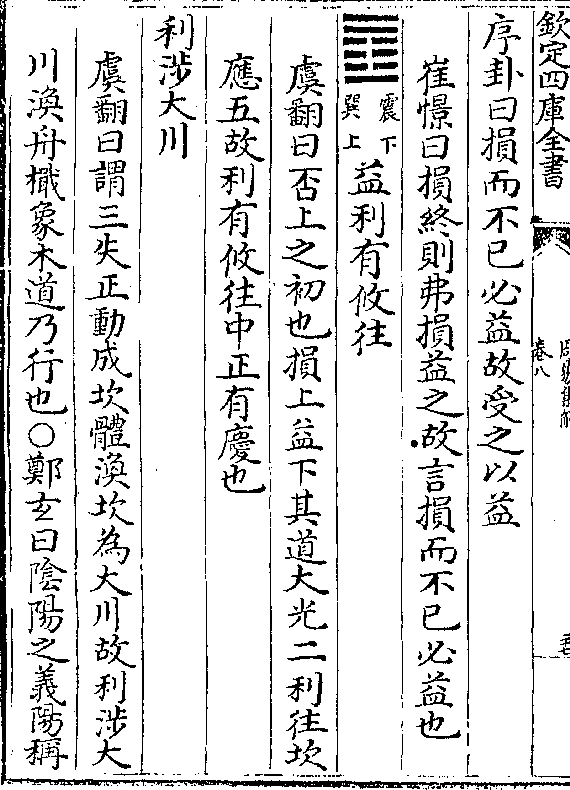 欽定四庫全書
卷八
序卦曰損而不已必益故受之以益
崔憬曰損終則弗損益之故言損而不已必益也
震下
巽上
益利有攸往
虞翻曰否上之初也損上益下其道大光二利往坎
應五故利有攸往中正有慶也
利涉大川
虞翻曰謂三失正動成坎體渙坎為大川故利涉大
川渙舟檝象木道乃行也○鄭玄曰陰陽之義陽稱